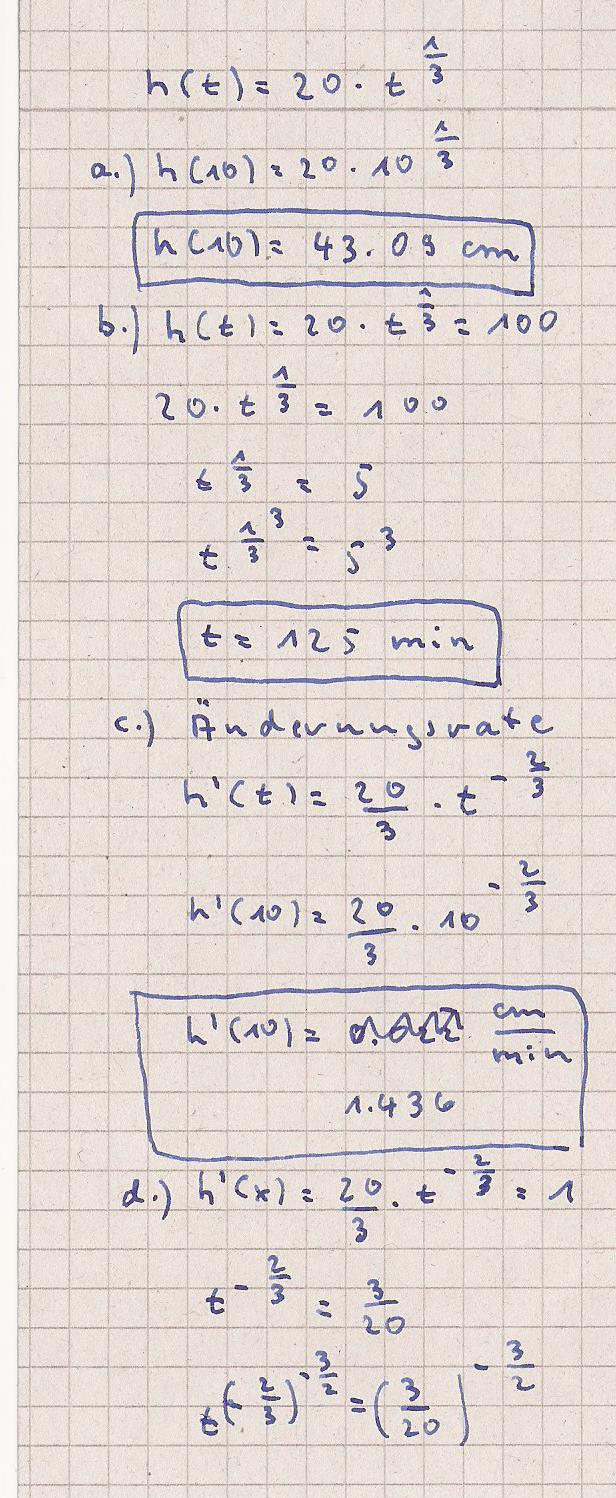 h(t) = 20 · t^(1/3)
a.) h(10) = 20 · 10^(1/3)
h(10) = 43.09 cm
b.) h(t) = 20 · t^(1/3) = 100
20 · t^(1/3) = 100
t^(1/3) = 5
t^(1/3)^3 = 5^3
t = 125 min
c.) Änderungsrate
h'(t) = 20/3 · t^(-2/3)
h'(10) = 20/3 · 10^(-2/3)
h'(10) = cm/min
1.436
d.) h'(x) = 20/3 · t^(-2/3) = 1
t^(-2/3) = 3/20
t^(-2/3)^(-3/2) = (3/20)^(-3/2)